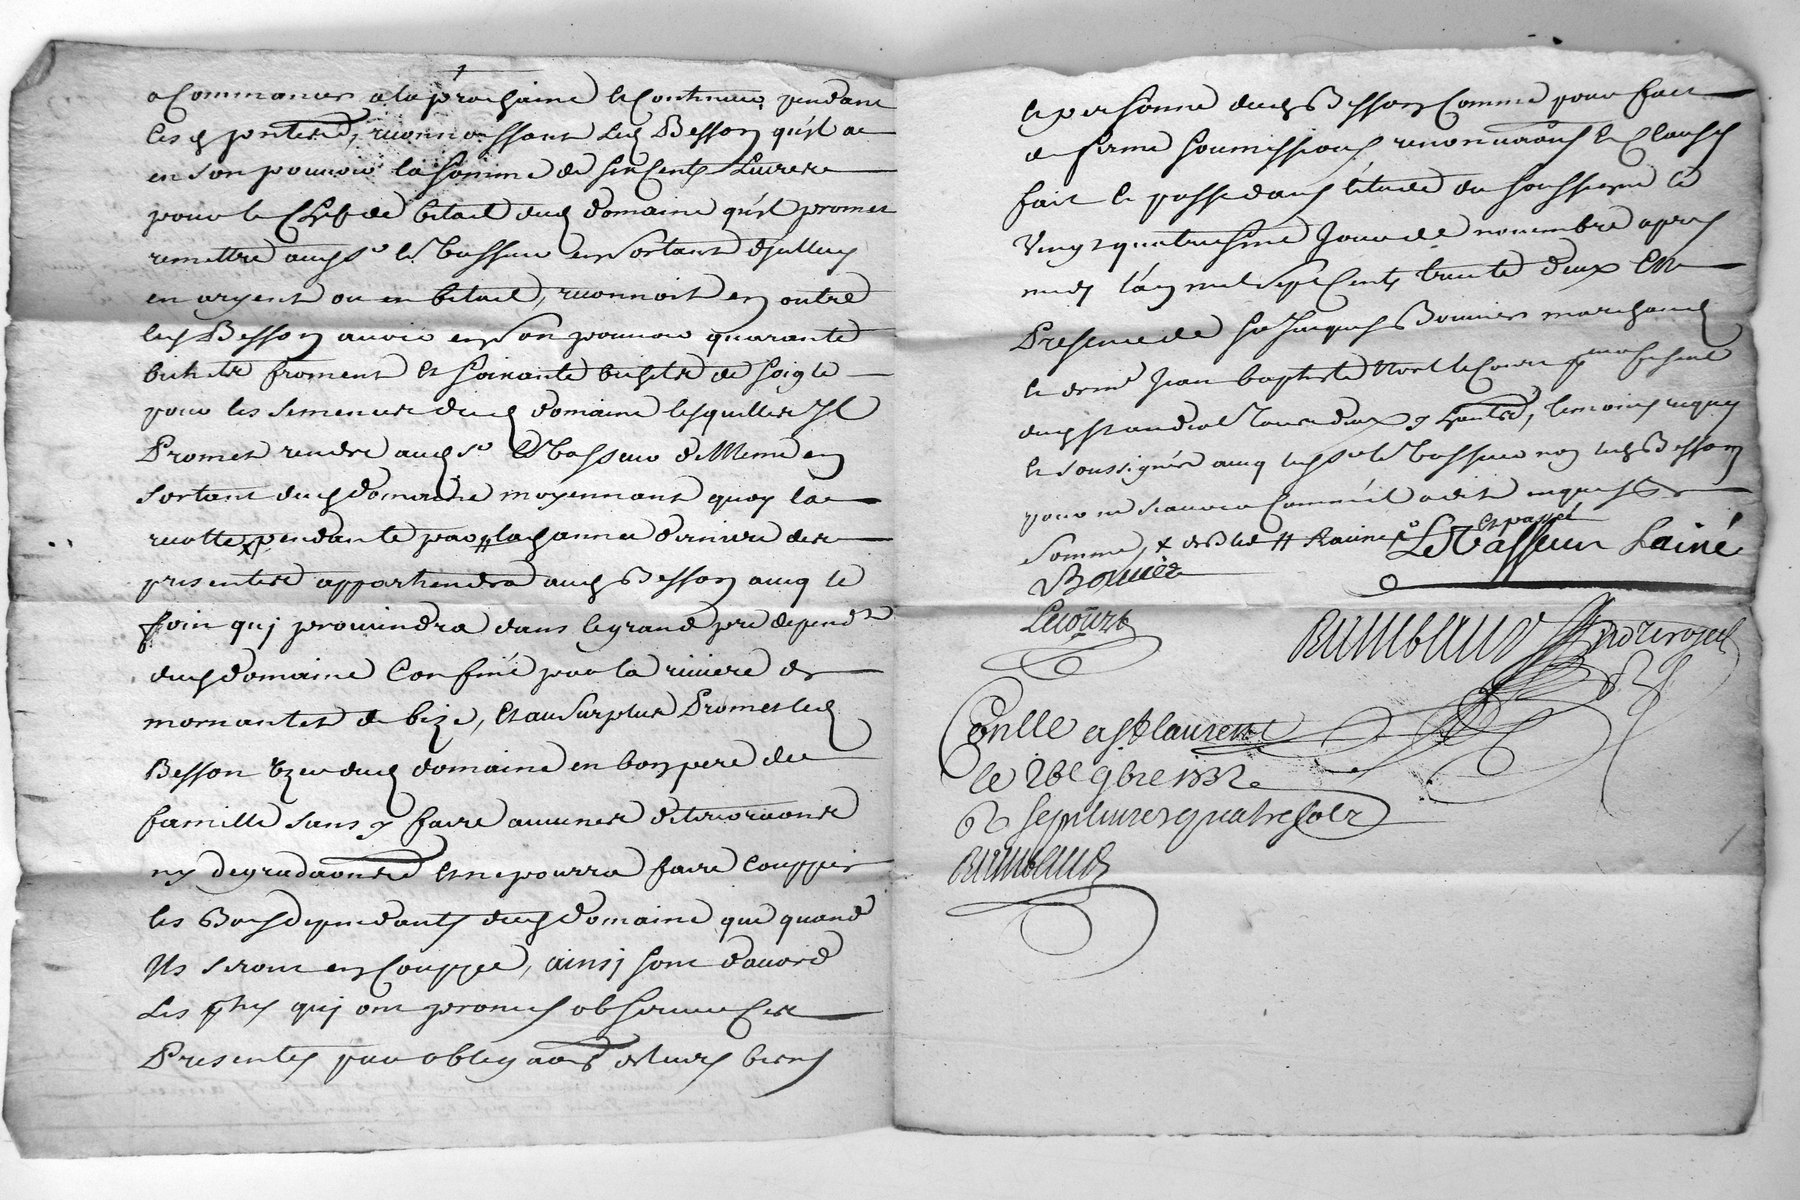 a Commancer a la prochaine et Continuer pendant
les presentes, reconnoissant led Besson qu'il a
en son pouvoir la somme de six Cents Livres
pour le Chef de bétail dud domaine qu'il promet
remettre aud sr le Vasseur en sortant d'Iceluy
en argent ou en bétail, reconnoit en outre
led Besson avoir en son pouvoir quarante
bichets froment et soixante bichets de soigle
pour les semences dud domaine lesquelles Il
Promet rendre aud sr le Vasseur de Meme en
sortant dud domaine moyennant quoy la
recolte pendante par la annee derniere des
presentes appartiendra aud Besson avec le
foin quj proviendra dans le grand pré depend.t
dud domaine Confiné par la riviere de
mornantet de bize, et au surplus Promet led
Besson Uzer dud domaine en bon pere de
famille sans y faire aucunes deterioraons
ny degradaons et ne pourra faire coupper
les Bois dependants dud domaine que quand
Ils seront en Couppe, ainsj sont d'accord
Les pties quj ont promis observer Ces
Presentes par obligaons de leurs biens
et personne dud Besson Comme pour fait
de ferme soumissions renonciaons et Clauses
fait et passé dans l'étude du soussigné le
Vingt quatriesme Jour de novembre apres
midy l'an mil sept Cents trente deux En
Presence de sr Jacques Bouvier marchand
et de mr Jean baptiste Lecourt
dud st andeol temoins requis
et soussignés avec led sr le Vasseur non led Besson
pour ne scavoir Comme il a dit enquis et
Sommé, x des bled # Racine
et parap.é
Le Vasseur Lainé
Bouvier
Lecourt
Rimbaud
Conlle a st laurent
le 26e 9bre 1732
R sept livres quatre sols
Rimbaud